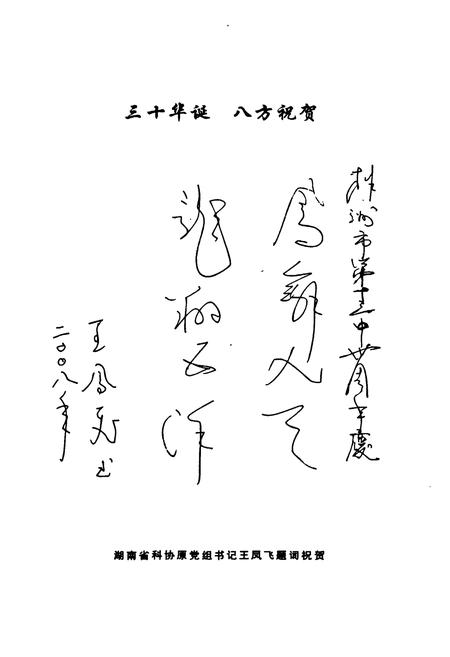 三十华诞 八方祝贺
株洲市第十三中卅周年慶
鳳舞九天
龍翔五洋
王鳳飞书
二〇〇八年
湖南省科协原党组书记王凤飞题词祝贺